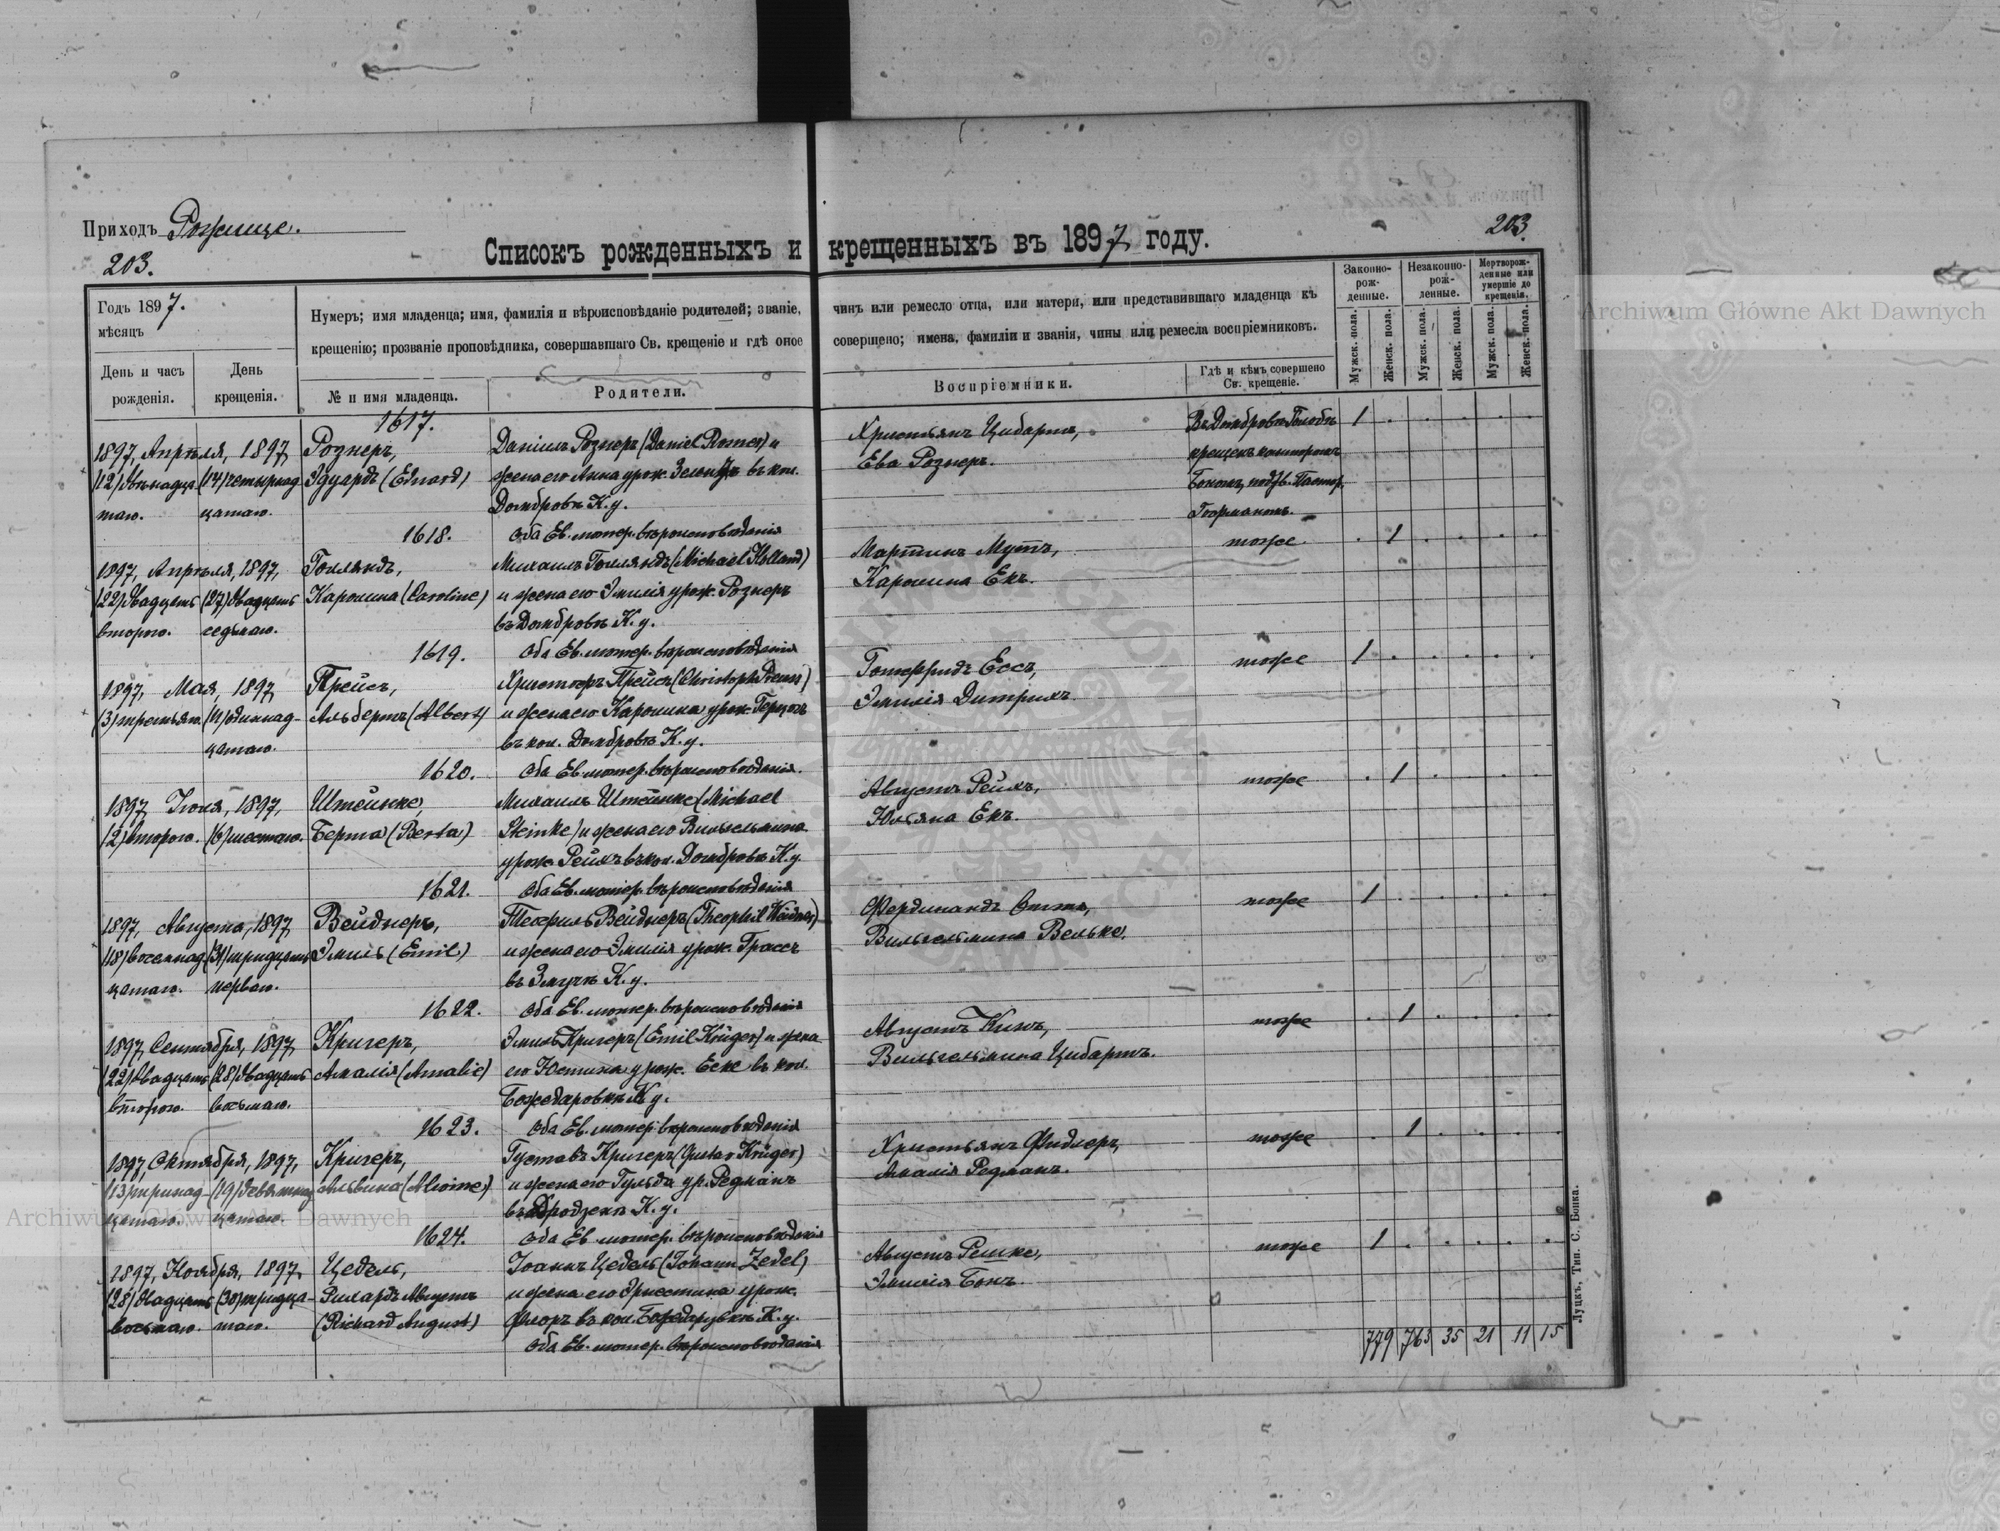 Приходъ Рожище.
203.
203.
Списокъ рожденныхъ и крещенныхъ въ 1897 году.
Годъ 1897.
мѣсяцъ
День и часъ рожденія.
День крещенія.
Нумеръ; имя младенца; имя, фамилія и вѣроисповѣданіе родителей; званіе, чинъ или ремесло отца, или матери, или представившаго младенца къ
крещенію; прозваніе проповѣдника, совершавшаго Св. крещеніе и гдѣ оное совершено; имена, фамиліи и званія, чины или ремесла воспріемниковъ.
№ и имя младенца.
Родители.
Воспріемники.
Гдѣ и кѣмъ совершено Св. крещеніе.
Законно-рож-денные.
Незаконно-рож-денные.
Мертворож-денные или умершіе до крещенія.
Мужск. пола.
Женск. пола.
Мужск. пола.
Женск. пола.
Мужск. пола.
Женск. пола.
1617.
1897, Апрѣля, 1897, Рознеръ, Даніилъ Рознеръ (Daniel Rosner) и Христьянъ Цибартъ, 1
(12) двѣнадца- (14) четырнад- Эдуардъ (Eduard) жена его Анна урож. въ кол. Ева Рознеръ.
таго. цатаго. Домбровѣ К. у.
1618. Оба Ев. лютер. вѣроисповѣданія
1897, Апрѣля, 1897, Голляндъ, Михаилъ Голляндъ (Michael Holland) Мартинъ Мутъ, тоже 1
(22) двадцать (27) двадцать Каролина (Caroline) и жена его Эмилія урож. Рознеръ Каролина Екъ.
второго. седьмаго. въ Домбровѣ К. у.
1619. Оба Ев. лютер. вѣроисповѣданія
1897, Мая, 1897, Прейсъ, Христофъ Прейсъ (Christoph Preuss) Готтфридъ Ессъ, тоже 1
(3) третьяго (11) одиннад- Альбертъ (Albert) и жена его Каролина урож. Герцогъ Эмилія Дитрихъ.
цатаго. въ кол. Домбровѣ К. у.
1620. Оба Ев. лютер. вѣроисповѣданія.
1897, Іюля, 1897, Штейнке, Михаилъ Штейнке (Michael Августъ Рейхъ, тоже 1
(2) второго. (6) шестаго. Берта (Berta) Steinke) и жена его Вильгельмина Юльяна Екъ.
урож. Рейхъ въ кол. Домбровѣ К. у.
1621. Оба Ев. лютер. вѣроисповѣданія
1897, Августа, 1897, Вейднеръ, Теофилъ Вейднеръ (Theophil Weidner) Фердинандъ тоже 1
(18) восемнад- (31) тридцать Эмиль (Emil) и жена его Эмилія урож. Грассъ Вильгельмина Вельке.
цатаго. перваго. въ К. у.
1622. Оба Ев. лютер. вѣроисповѣданія
1897, Сентября, 1897, Кригеръ, Эмиль Кригеръ (Emil Krüger) и жена Августъ тоже 1
(22) двадцать (28) двадцать Амалія (Amalie) его Юстина урож. Еске въ кол. Вильгельмина Цибартъ.
второго. восьмаго. Божедаровкѣ К. у.
1623. Оба Ев. лютер. вѣроисповѣданія
1897, Октября, 1897, Кригеръ, Густавъ Кригеръ (Gustav Krüger) Христьянъ Фидлеръ, тоже 1
(13) тринад- (19) девятнад- Альвина (Alwine) и жена его Гульда ур. Редманъ Амалія Редманъ.
цатаго. цатаго. К. у.
1624. Оба Ев. лютер. вѣроисповѣданія
1897, Ноября, 1897, Цедель, Іоанъ Цедель (Johann Zedel) Августъ Решке, тоже 1
(28) двадцать (30) тридца- Рихардъ Августъ и жена его урож. Эмилія Бонъ.
восьмаго. таго. (Richard August) Флоръ въ кол. К. у.
Оба Ев. лютер. вѣроисповѣданія
779 763 35 21 11 15
Луцкъ, Тип. С. Бонка.
Archiwum Główne Akt Dawnych
Archiwum Główne Akt Dawnych